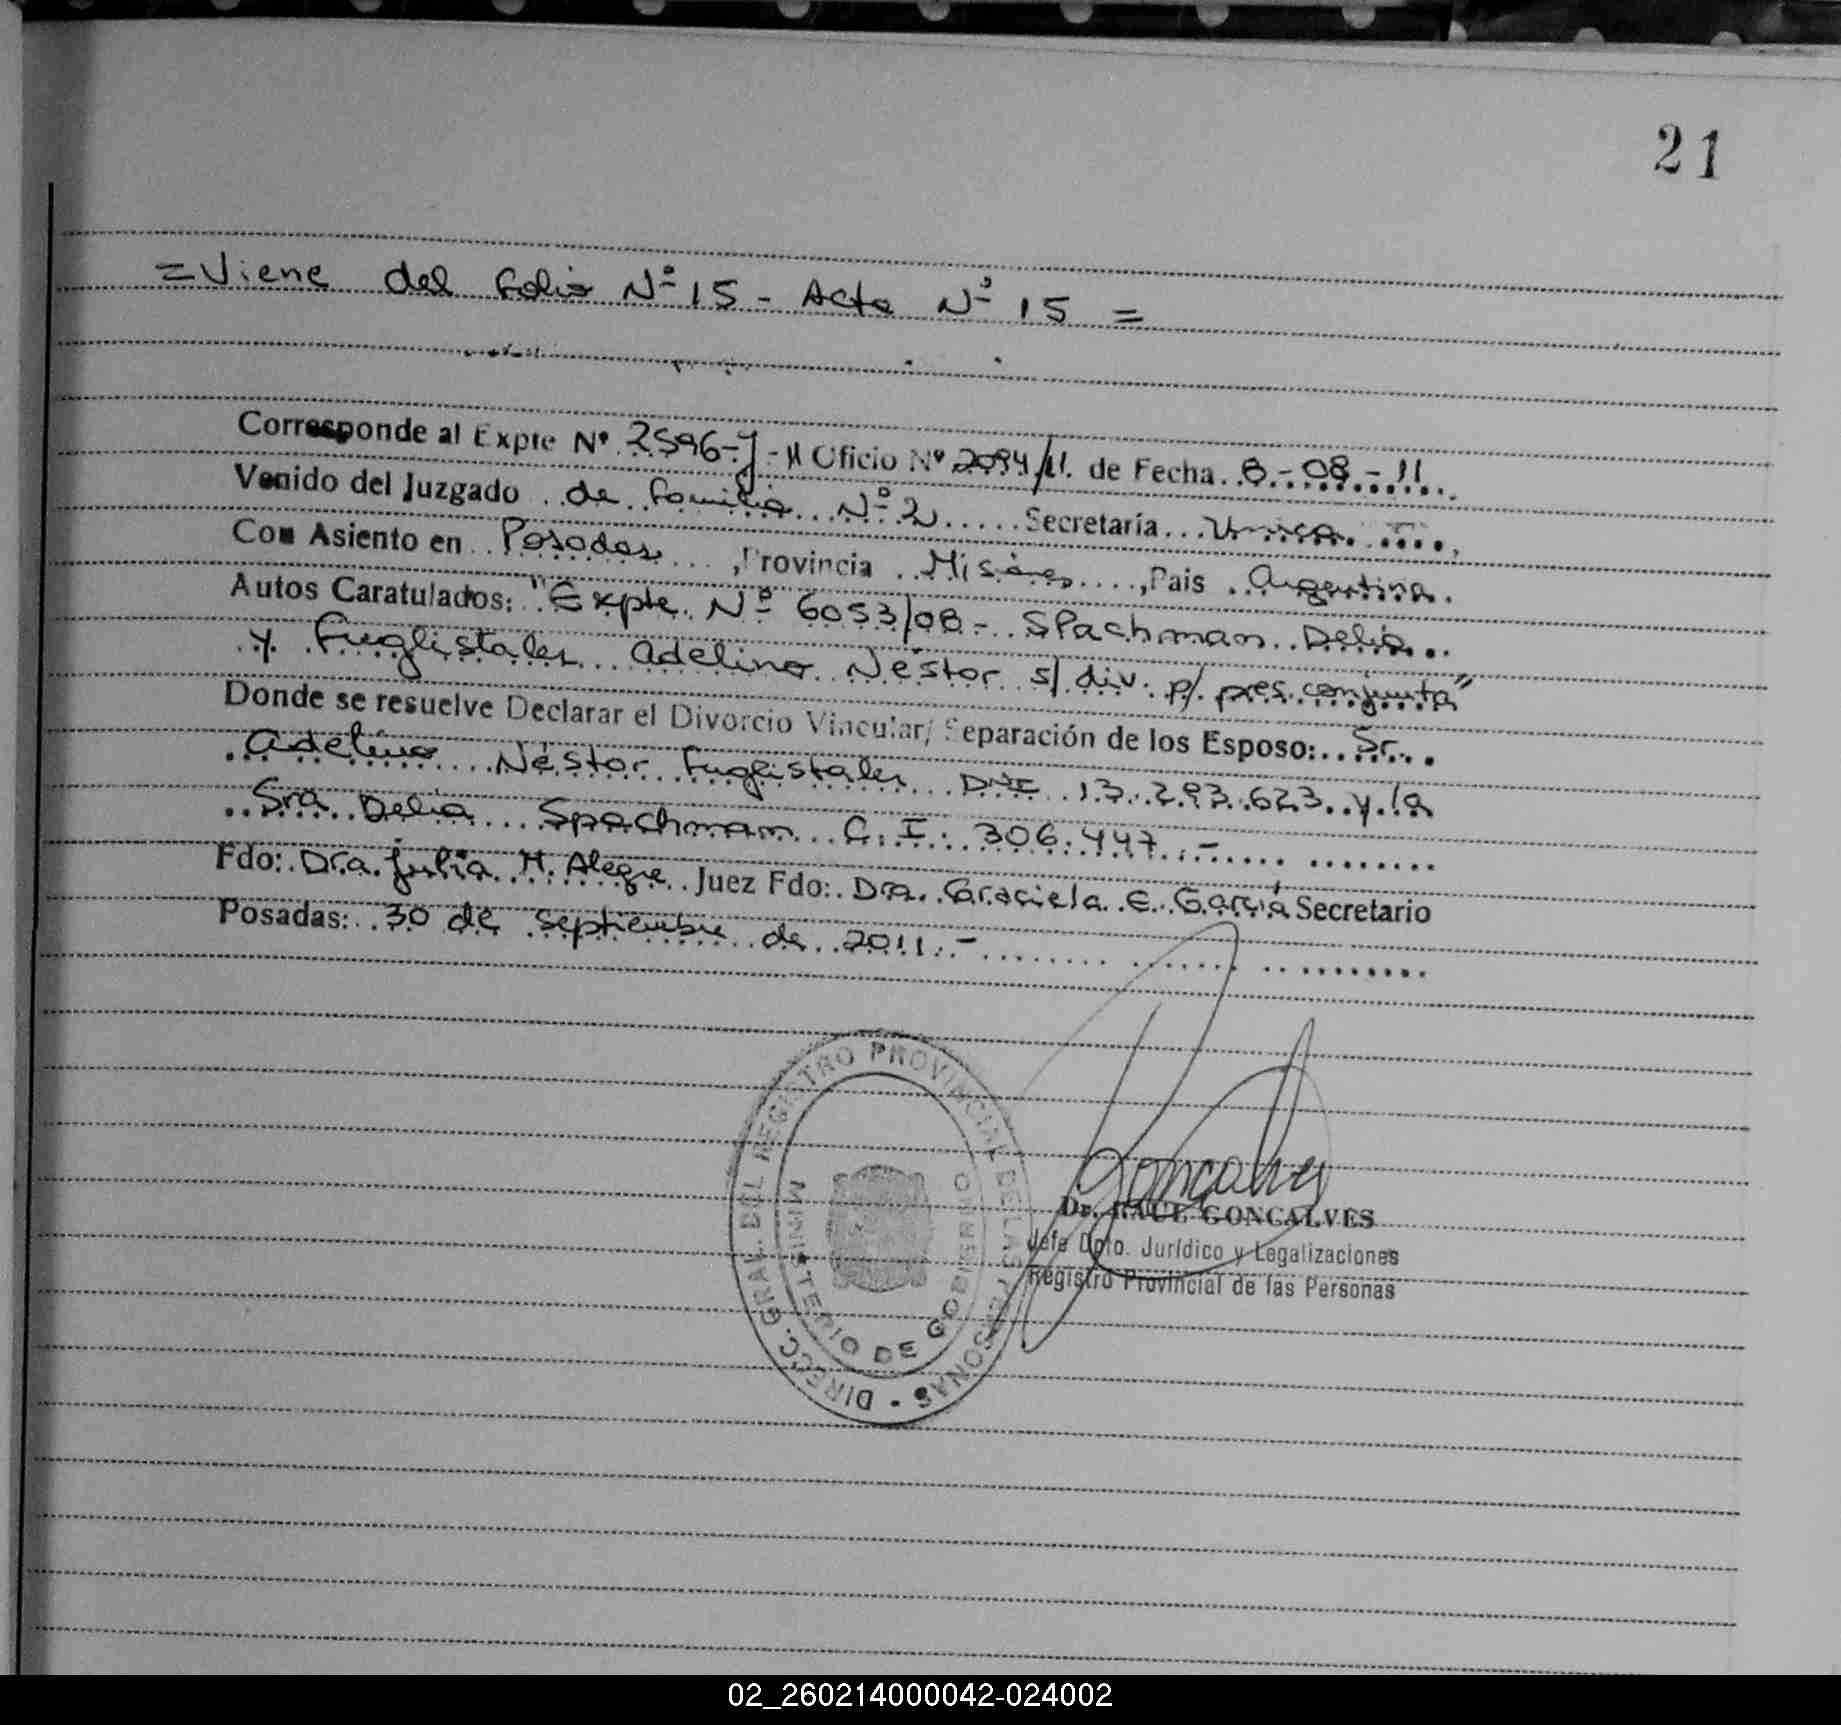 21
=Viene del folio Nº 15 - Acta Nº 15 =
Corresponde al Expte Nº 2596-J-11 Oficio Nº 2094/11. de Fecha 8-08-11
Venido del Juzgado de familia Nº 2 Secretaría Unica
Con Asiento en Posadas, Provincia Misiones, Pais Argentina.
Autos Caratulados: "Expte. Nº 6053/08 - Spachman Delia
y Fuglistaler Adelino Néstor s/ div. p/ pres. conjunta"
Donde se resuelve Declarar el Divorcio Vincular/ Separación de los Esposo: Sr.
Adelino Néstor Fuglistaler DNI 13.293.623 y la
Sra Delia Spachman C.I. 306.447.-
Fdo: Dra. Julia H. Alegre Juez Fdo: Dra. Graciela E. García Secretario
Posadas: 30 de Septiembre de 2011.-
DIRECC. GRAL. DEL REGISTRO PROVINCIAL DE LAS PERSONAS
MINISTERIO DE GOBIERNO
Goncalves
Dr. RAUL GONCALVES
Jefe Dpto. Jurídico y Legalizaciones
Registro Provincial de las Personas
02_260214000042-024002